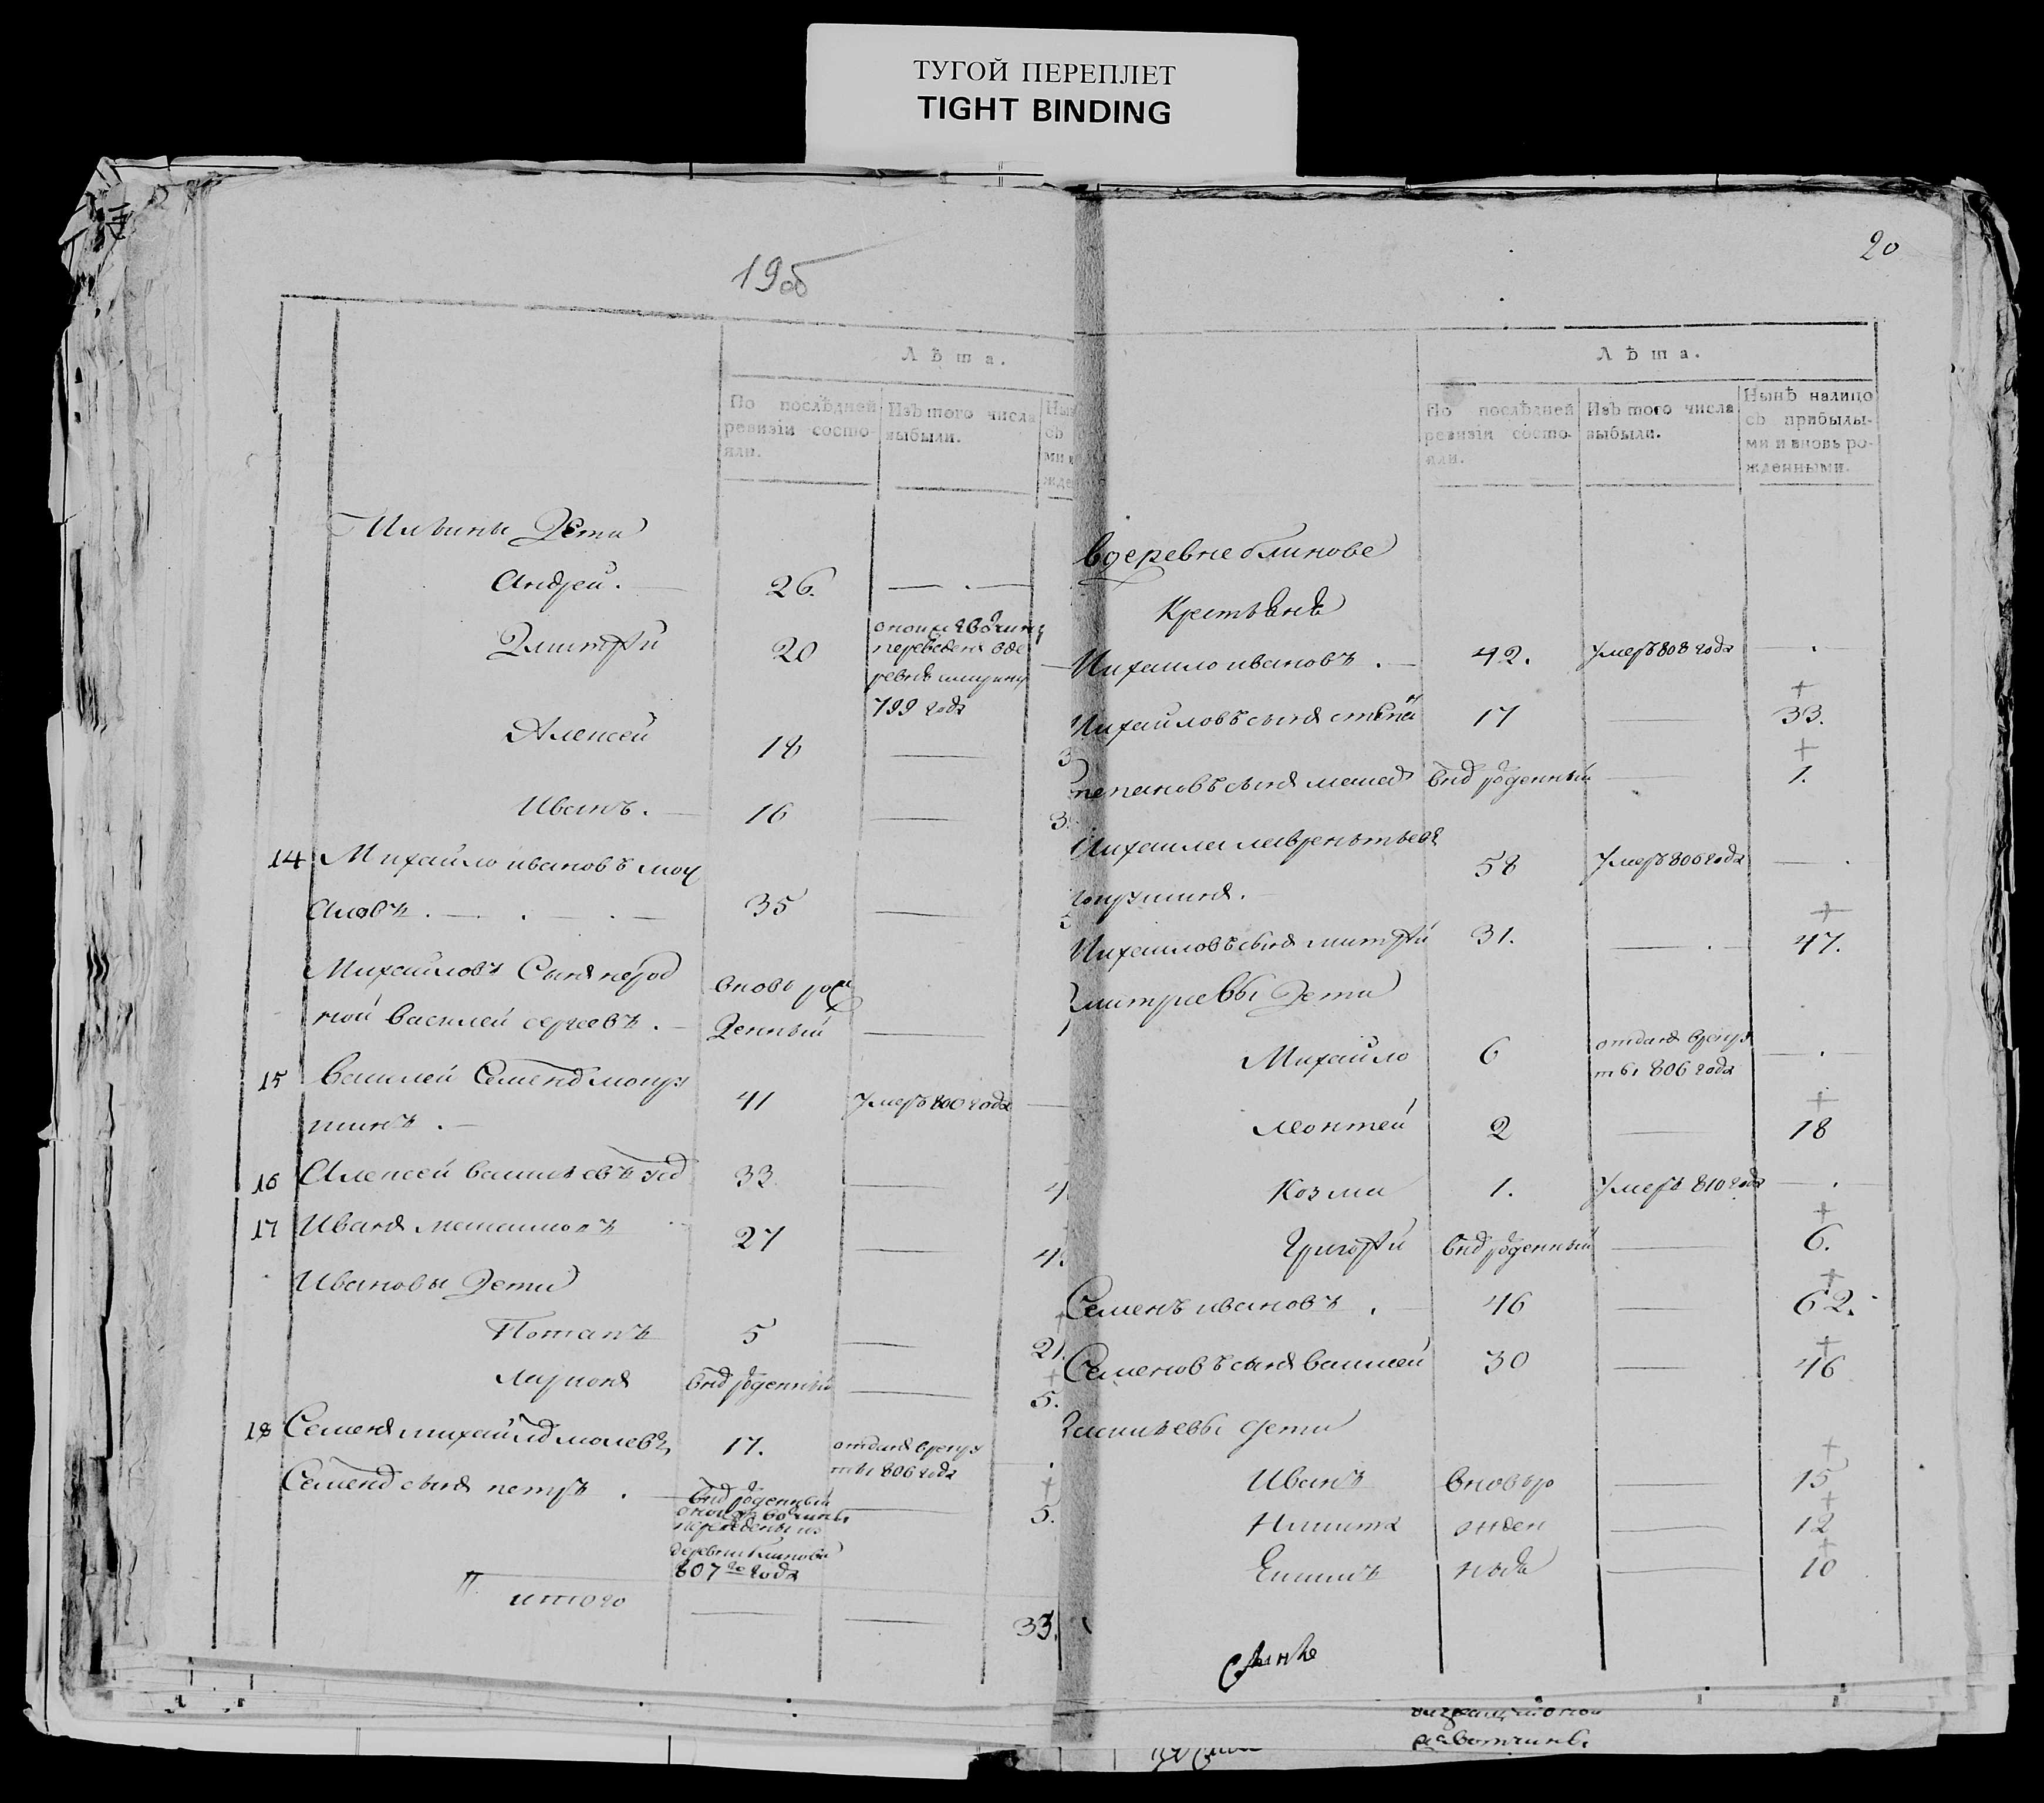 ТУГОЙ ПЕРЕПЛЕТ
TIGHT BINDING
19об
Лѣта.
По послѣдней ревизіи состояли.
Изъ того числа выбыли.
Ильины Дети
Андрей. 26.
Дмитрѣй 20
переведенъ вде
ревню
799 года
Алексей 18
Иванъ. 16
14 Михайло ивановъ
35
Михайловъ Сынъ
ной василей сергеевъ. вновь рож
денный
15 Василей Семенов
41 умеръ 800 года
16 Алексей васильевъ 33
17 Иванъ 27
Ивановы Дети
Потапъ 5 21.
Ларионъ внов рожденный 5.
18 Семенъ михайлов 17. отданъ врекру
ты 806 года
Семенов сынъ петръ. внов рожденный 5.
переведены из
деревни блиновы
807го года
итого 33.
20
Лѣта.
По послѣдней ревизіи состояли.
Изъ того числа выбыли.
Нынѣ налицо съ прибылыми и вновь рожденными.
вдеревне блинове
Крестьянъ
Михайло ивановъ. 42. умеръ 808 года
Михайловъ сынъ степан 17 33.
Степановъ сынъ внов рожденный 1.
Михаила лаврентьевъ
58 умеръ 806 года
Михайловъ сынъ митрѣй 31. 47.
Дмитриевы Дети
Михайло 6 отданъ врекру
ты 806 года
Леонтей 2 18
Козма 1. умеръ 810 года
Григорѣй внов рожденный 6.
Семенъ ивановъ. 46 62.
Семеновъ сынъ василей 30 46
Васильевы дети
Иванъ вновьро 15
Никита жден 12
Екимъ ныя 10